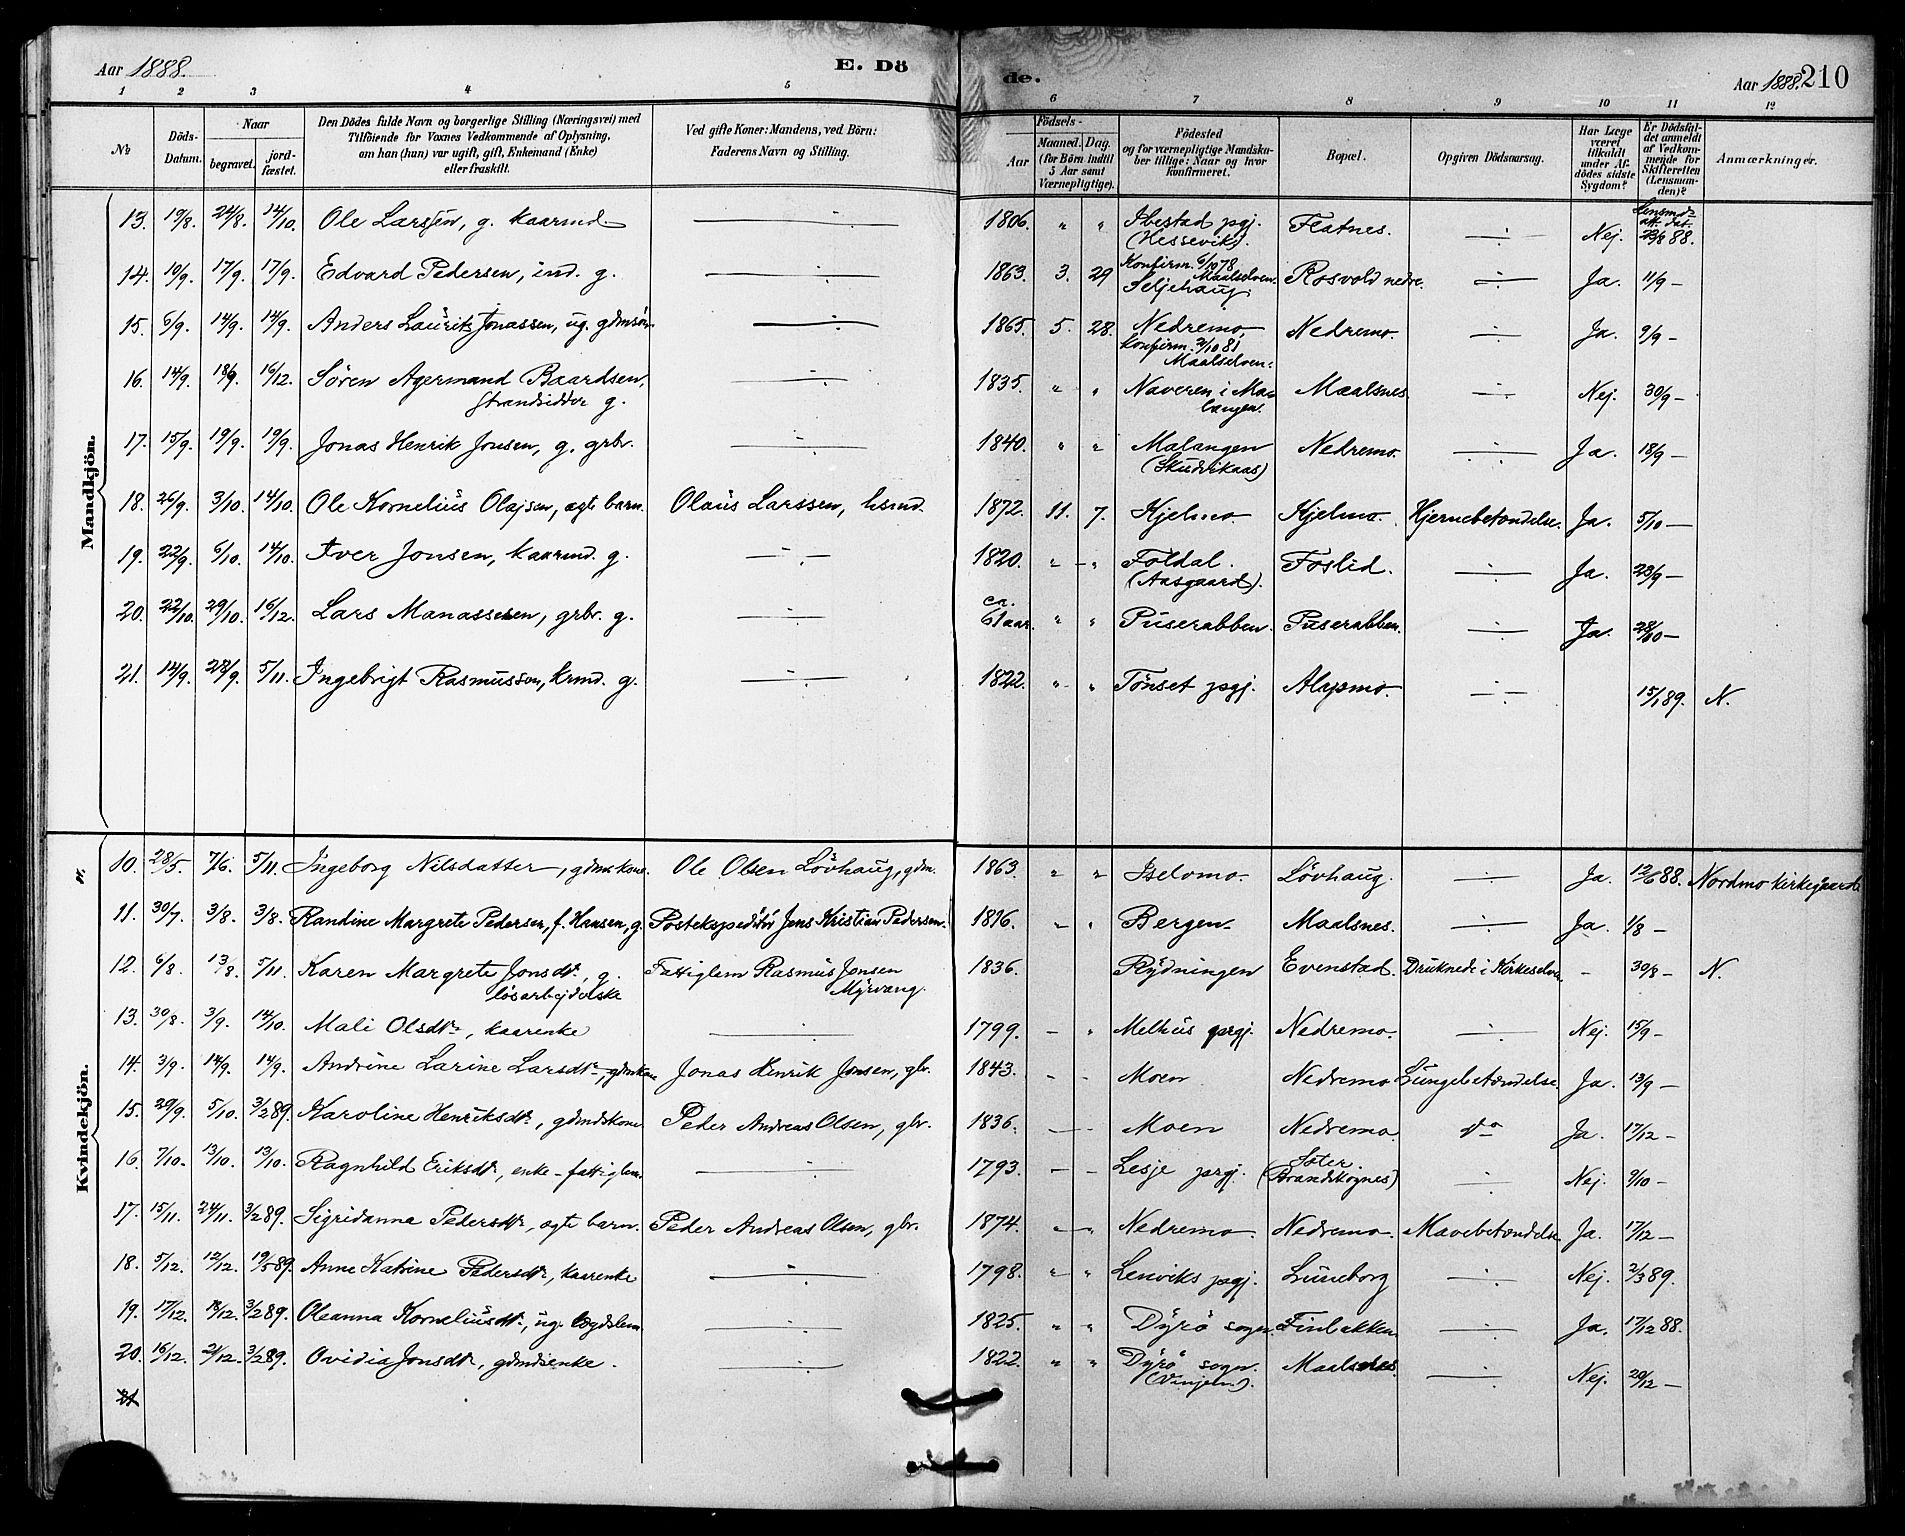 Aar 1888. E. Dö
de. Aar 1888. 210
1 2 3 4 5 6 7 8 9 10 11 12
№ Döds-Datum. Naar begravet. jord-fæstet. Den Dödes fulde Navn og borgerlige Stilling (Næringsvei) med Tilföiende for Voxnes Vedkommende af Oplysning, om han (hun) var ugift, gift, Enkemand (Enke) eller fraskilt. Ved gifte Koner: Mandens, ved Börn: Faderens Navn og Stilling. Födsels- Aar Maaned. Dag. (for Börn indtil 5 Aar samt Værnepligtige). Födested og for værnepligtige Mandskaber tillige: Naar og hvor konfirmeret. Bopæl. Opgiven Dödsaarsag. Har Læge været tilkaldt under Afdödes sidste Sygdom? Er Dödsfaldet anmeldt af Vedkommende for Skifteretten (Lensmanden)? Anmærkninger.
Mandkjön.
13. 19/8. 24/8. 14/10. Ole Larssen, g. kaarmd. 1806. " " Ibestad pgj. (Hessevik). Flatnes. Nej. Lensmds att. dat. 23/8 88.
14. 10/9. 17/9. 17/9. Edvard Pedersen, ind. g. 1863. 3. 29 Konfirm. 6/10 78 Maalselven. Seljehaug. Rosvold nedre. Ja. 11/9 —
15. 6/9. 14/9. 14/9. Anders Laurits Jonassen, ug. gdmsön. 1865. 5. 28. Nedremo. Konfirm. 2/10 81 Maalselven. Nedremo. Ja. 9/9 —
16. 14/9. 18/9. 16/12. Sören Agermand Baardsen, Strandsidder g. 1835. " " Naveren i Malangen. Maalsnes. Nej. 30/9 —
17. 15/9. 19/9. 19/9. Jonas Henrik Jonsen, g. grbr. 1840. " " Malangen (Skudvikaas) Nedremo. Ja. 18/9 —
18. 26/9. 3/10. 14/10. Ole Kornelius Olajsen, ægte barn. Olaus Larssen, husmd. 1872. 11. 7. Kjelmo. Kjelmo. Hjernebetændelse. Ja. 5/10 —
19. 22/9. 6/10. 14/10. Iver Jonsen, kaarmd. g. 1820. " " Foldal. (Aasgaard). Foslid. Ja. 23/9 —
20. 22/10. 29/10. 16/12. Lars Manassesen, grbr. g. ca. 61 aar. " " Puserabben. Puserabben. Ja. 28/10 —
21. 14/9. 28/9. 5/11. Ingebrigt Rasmussen, krmd. g. 1822. " " Tönset pgj. Alapmo. 15/1 89. N.
Kvindekjön.
10. 28/5. 7/6. 5/11. Ingeborg Nilsdatter, gdmskone. Ole Olsen Lövhaug, gdm. 1863. " " Iselvmo. Lövhaug. Ja. 12/6 88. Nordmo kirkegaard.
11. 30/7. 3/8. 3/8. Randine Margrete Pedersen, f. Hansen, g. Postekspeditör Jens Kristian Pedersen. Bergen. Maalsnes. Ja. 1/8 —
12. 6/8. 13/8. 5/11. Karen Margrete Jonsdtr., g. lösarbejderske Fattiglem Rasmus Jonsen Myrvang. 1836. Rydningen Evenstad. Druknede i Kirkeselven. - 30/8 — N.
13. 30/8. 3/9. 14/10. Mali Olsdtr., kaarenke 1799. — " Melhus prgj. Nedremo. Nej. 15/9 —
14. 3/9. 14/9. 14/9. Andrine Larine Larsdtr., gdmkone Jonas Henrik Jonsen, gbr. 1843. - - Moen Nedremo Lungebetændelse. Ja. 13/9 —
15. 29/9. 5/10. 3/2 89. Karoline Henriksdtr., gdmdskone Peder Andreas Olsen, gbr. 1836. — - Moen Nedremo. do Ja. 17/12 —
16. 7/10. 13/10. 13/10. Ragnhild Eriksdtr., enke - fattiglem. 1793. — - Lesje prgj. Sæter. (Brandskognes) Nej. 9/10 —
17. 15/11. 24/11. 3/2 89. Sigridanna Pedersdtr., ægte barn. Peder Andreas Olsen, gbr. 1874. " " Nedremo. Nedremo. Mavebetændelse. Ja. 17/12 —
18. 5/12. 12/12. 19/5 89. Anne Katrine Pedersdtr., kaarenke 1798. " " Lenviks pgj. Luneborg Nej. 2/3 89.
19. 17/12. 18/12. 3/2 89. Oleanna Korneliusdtr., ug. lægdslem. 1825. " " Dyrö sogn. Finbakken. Ja. 17/12 88.
20. 16/12. 21/12. 3/2 89. Ovidia Jonsdtr., gdmdsenke. 1822. " " Dyrö sogn. (Vinjeln). Maalsnes. Nej. 20/12 —
21